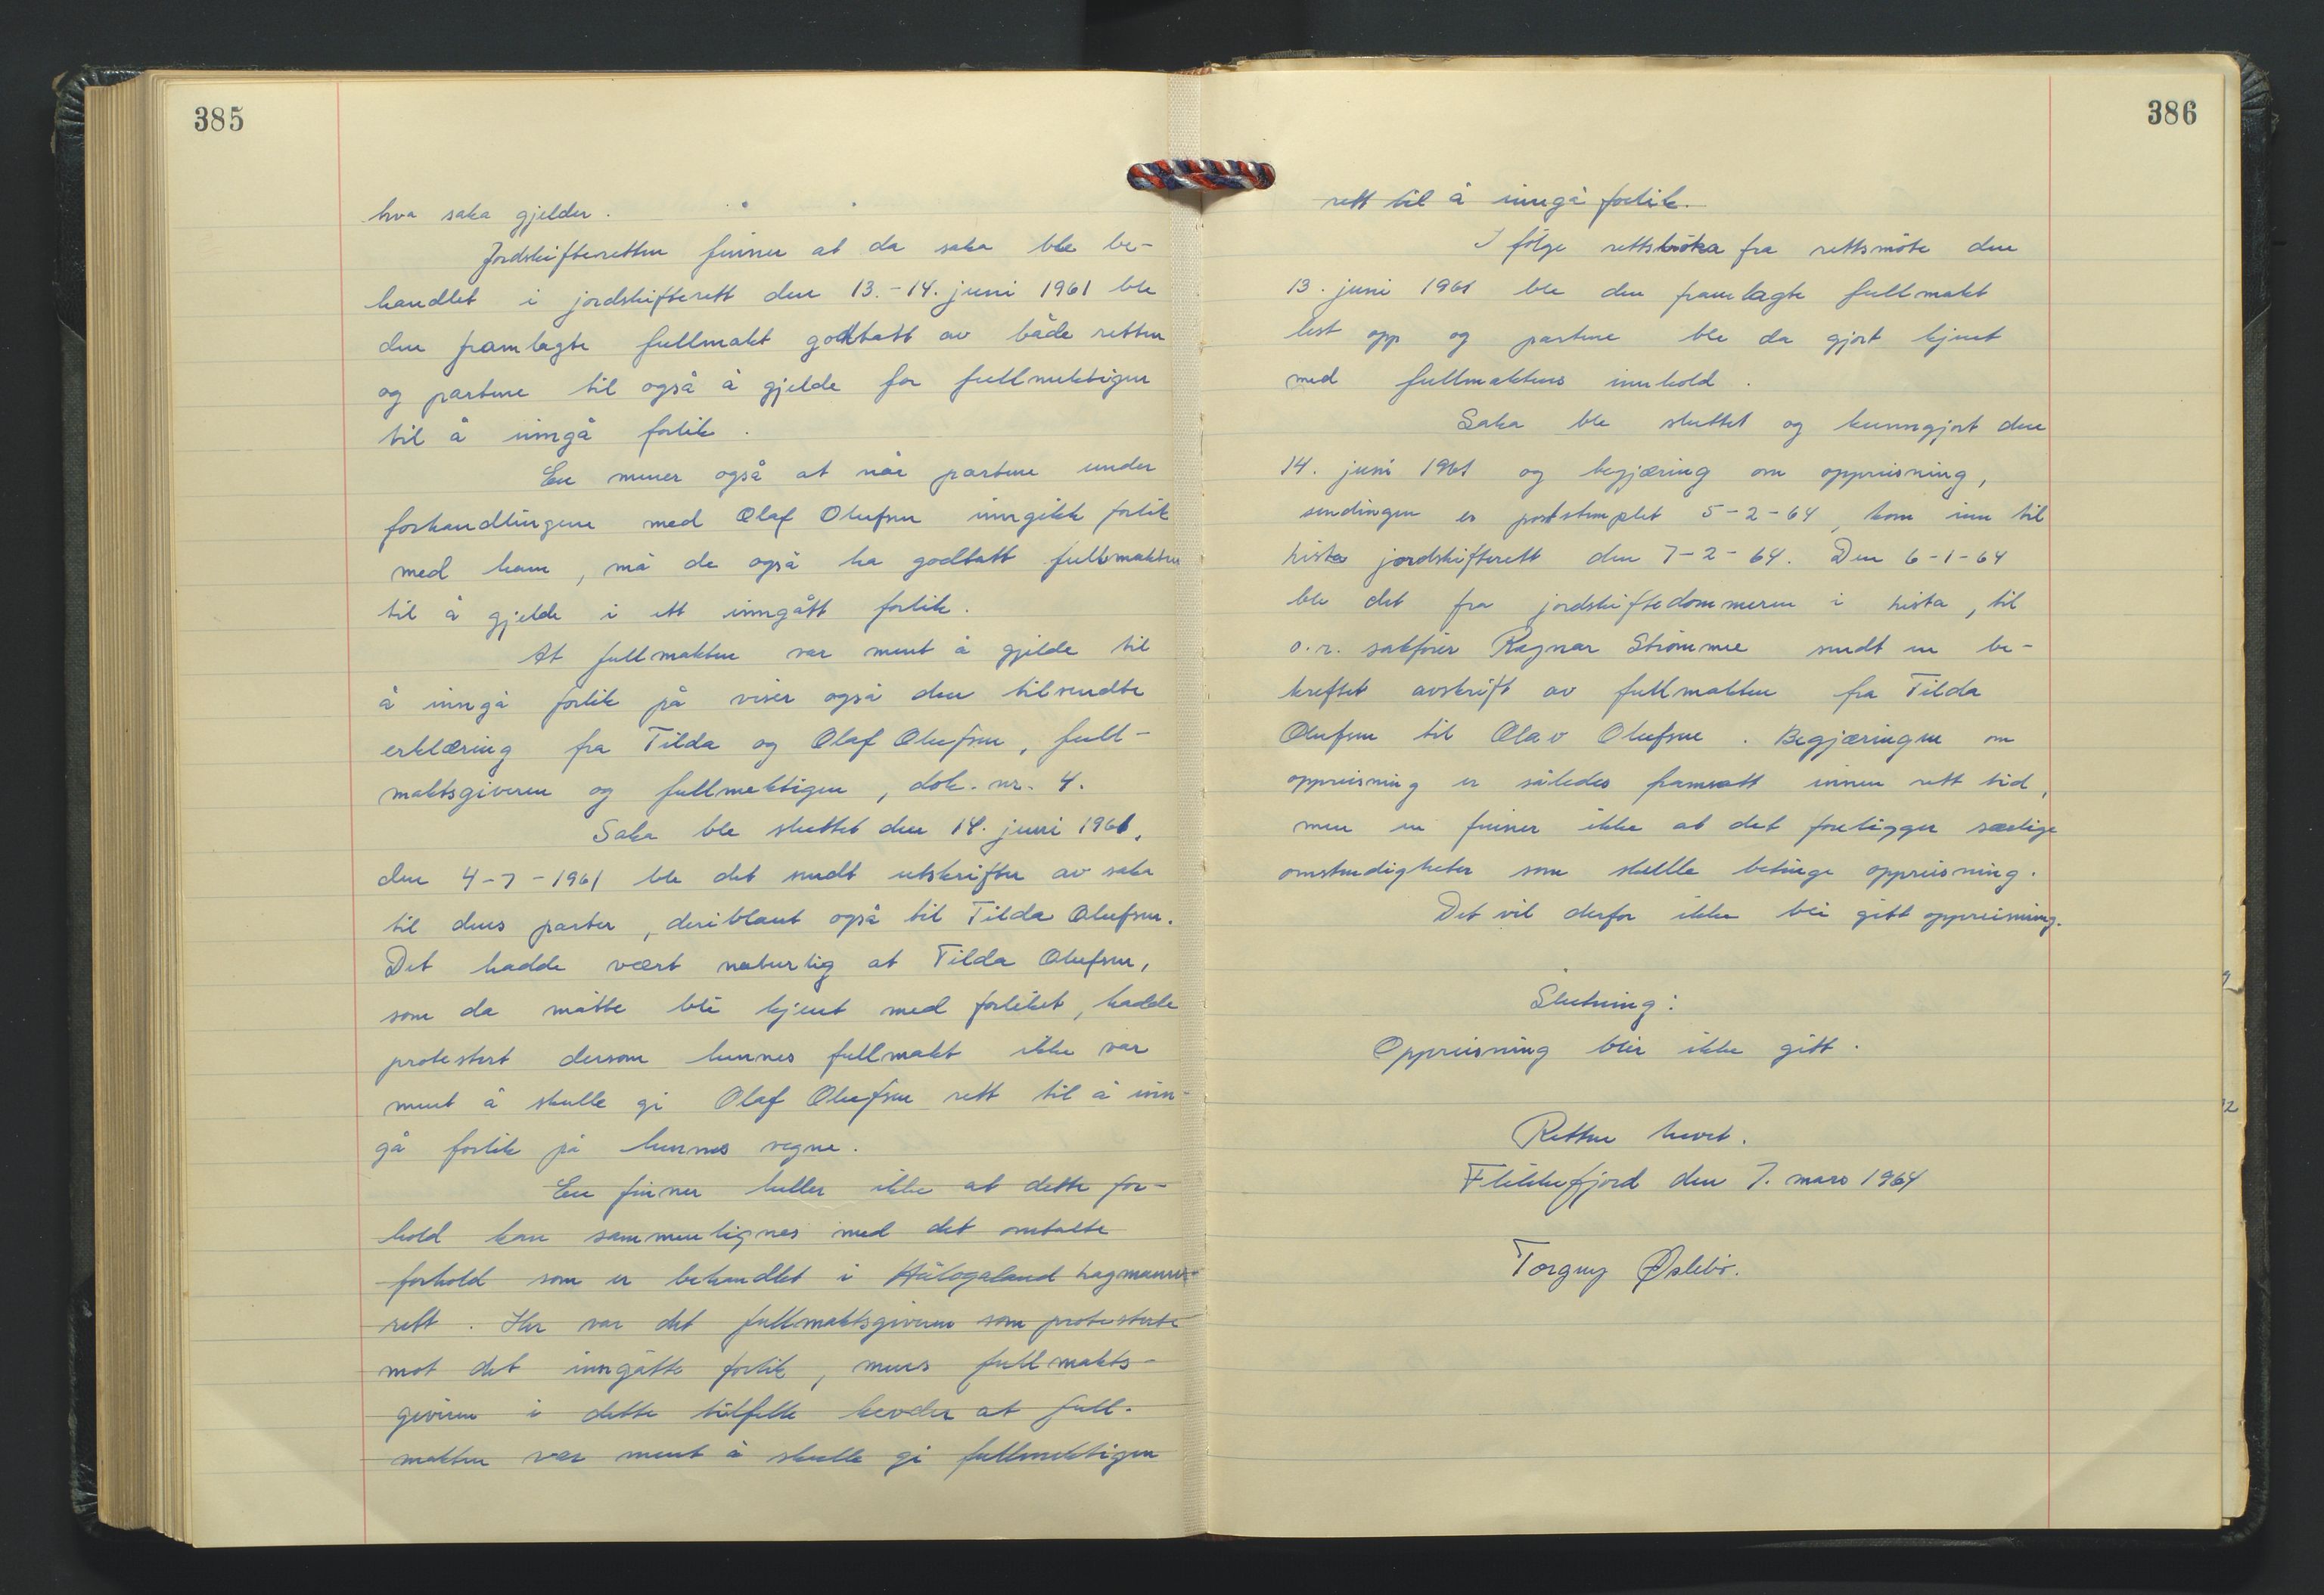 385
hva saka gjelder.
Jordskifteretten finner at da saka ble be-
handlet i jordskifterett den 13.-14. juni 1961 ble
den framlagte fullmakt godtatt av både retten
og partene til også å gjelde for fullmektigen
til å inngå forlik.
En mener også at når partene under
forhandlingene med Olaf Olufsen inngikk forlik
med ham, må de også ha godtatt fullmakten
til å gjelde i ett inngått forlik.
At fullmakten var ment å gjelde til
å inngå forlik på viser også den tilsendte
erklæring fra Tilda og Olaf Olufsen, full-
maktsgiveren og fullmektigen, dok. nr. 4.
Saka ble sluttet den 14. juni 1961,
den 4-7-1961 ble det sendt utskrifter av saka
til dens parter, deriblant også til Tilda Olufsen.
Det hadde vært naturlig at Tilda Olufsen,
som da måtte bli kjent med forliket, hadde
protestert dersom hennes fullmakt ikke var
ment å skulle gi Olaf Olufsen rett til å inn-
gå forlik på hennes vegne.
En finner heller ikke at dette for-
hold kan sammenlignes med det omtalte
forhold som er behandlet i Hålogaland lagmanns-
rett. Her var det fullmaktsgiveren som protesterte
mot det inngåtte forlik, mens fullmakts-
giveren i dette tilfelle hevder at full-
makten var ment å skulle gi fullmektigen
386
rett til å inngå forlik.
I følge rettsboka fra rettsmøte den
13. juni 1961 ble den framlagte fullmakt
lest opp og partene ble da gjort kjent
med fullmaktens innhold.
Saka ble sluttet og kunngjort den
14. juni 1961 og begjæring om oppreisning,
sendingen er poststemplet 5-2-64, kom inn til
Lista jordskifterett den 7-2-64. Den 6-1-64
ble det fra jordskiftedommeren i Lista, til
o.r. sakfører Ragnar Strømme sendt en be-
kreftet avskrift av fullmakten fra Tilda
Olufsen til Olav Olufsen. Begjæringen om
oppreisning er således framsatt innen rett tid,
men en finner ikke at det foreligger særlige
omstendigheter som skulle betinge oppreisning.
Det vil derfor ikke bli gitt oppreisning.
Slutning:
Oppreisning blir ikke gitt.
Retten hevet.
Flekkefjord den 7. mars 1964
Torgny Øslebø.